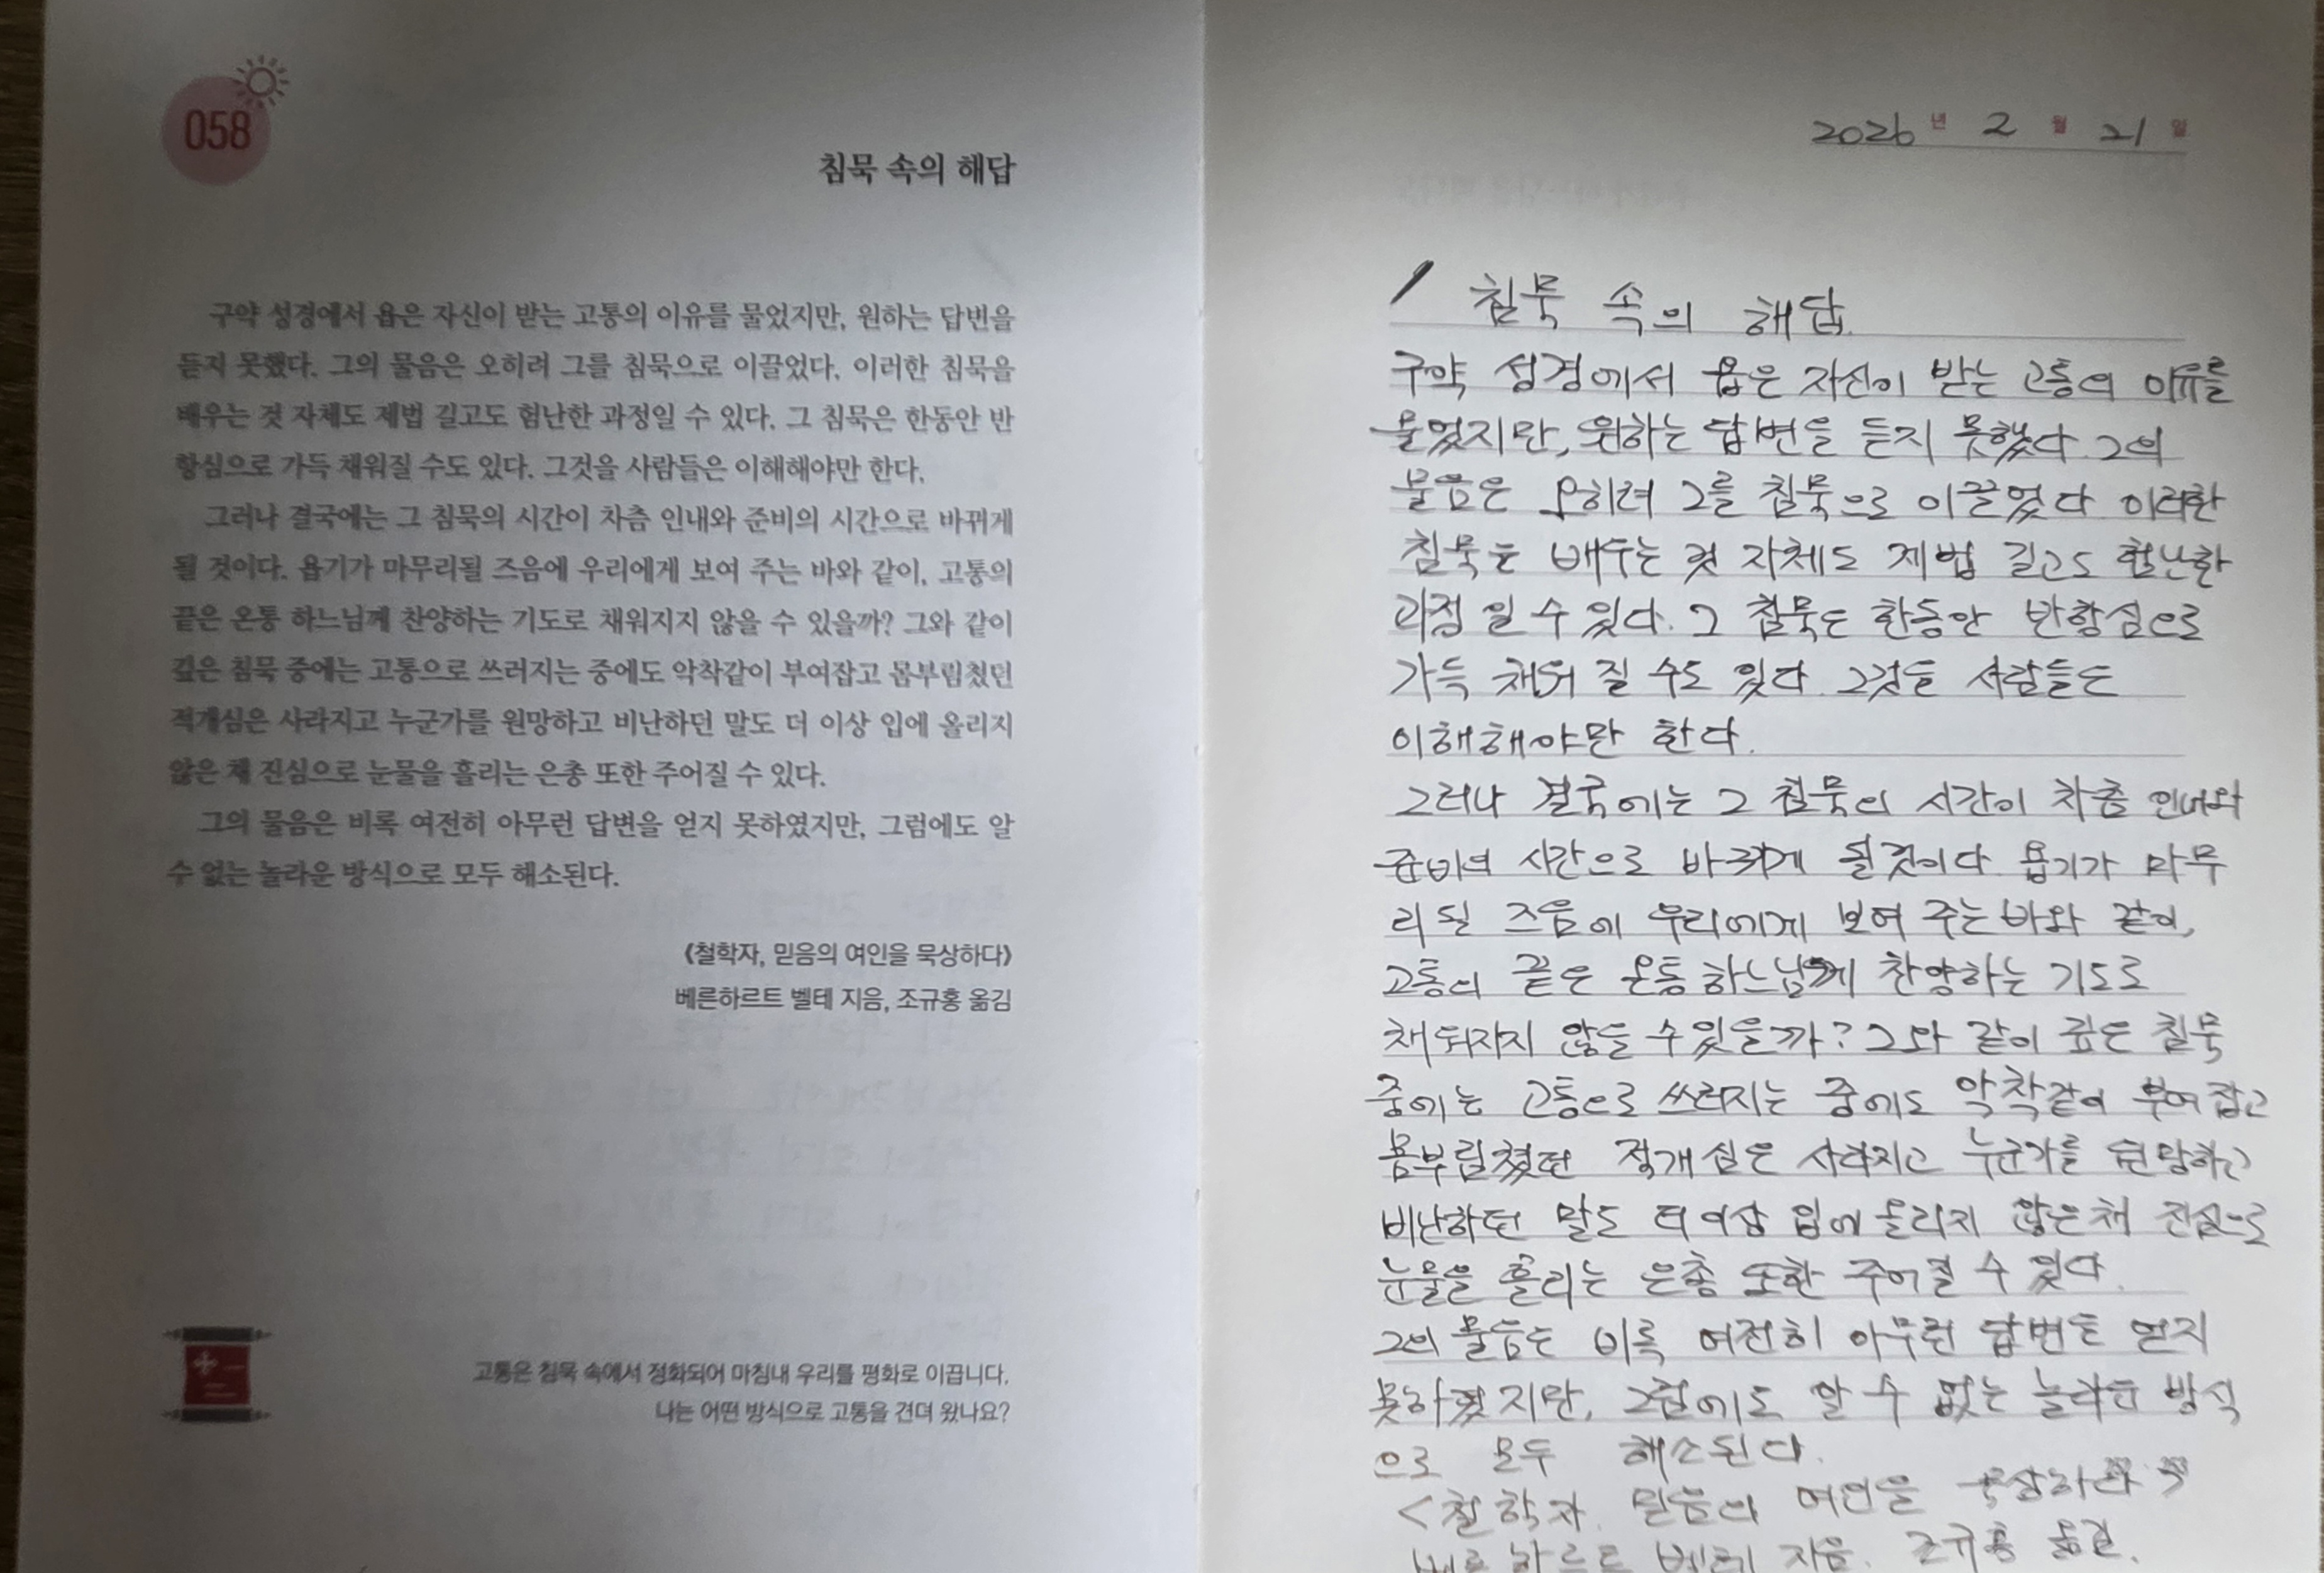 058
침묵 속의 해답
구약 성경에서 욥은 자신이 받는 고통의 이유를 물었지만, 원하는 답변을
듣지 못했다. 그의 물음은 오히려 그를 침묵으로 이끌었다. 이러한 침묵을
배우는 것 자체도 제법 길고도 험난한 과정일 수 있다. 그 침묵은 한동안 반
항심으로 가득 채워질 수도 있다. 그것을 사람들은 이해해야만 한다.
그러나 결국에는 그 침묵의 시간이 차츰 인내와 준비의 시간으로 바뀌게
될 것이다. 욥기가 마무리될 즈음에 우리에게 보여 주는 바와 같이, 고통의
끝은 온통 하느님께 찬양하는 기도로 채워지지 않을 수 있을까? 그와 같이
깊은 침묵 중에는 고통으로 쓰러지는 중에도 악착같이 부여잡고 몸부림쳤던
적개심은 사라지고 누군가를 원망하고 비난하던 말도 더 이상 입에 올리지
않은 채 진심으로 눈물을 흘리는 은총 또한 주어질 수 있다.
그의 물음은 비록 여전히 아무런 답변을 얻지 못하였지만, 그럼에도 알
수 없는 놀라운 방식으로 모두 해소된다.
《철학자, 믿음의 여인을 묵상하다》
베른하르트 벨테 지음, 조규홍 옮김
고통은 침묵 속에서 정화되어 마침내 우리를 평화로 이끕니다.
나는 어떤 방식으로 고통을 견뎌 왔나요?
2026년 2월 21일
침묵 속의 해답
구약 성경에서 욥은 자신이 받는 고통의 이유를
물었지만, 원하는 답변을 듣지 못했다 그의
물음은 오히려 그를 침묵으로 이끌었다 이러한
침묵는 배우는 것 자체도 제법 길고도 험난한
과정 일 수 있다. 그 침묵은 한동안 반항심으로
가득 채워 질 수도 있다 그것을 사람들은
이해해야만 한다.
그러나 결국에는 그 침묵의 시간이 차츰 인내와
준비의 시간으로 바뀌게 될것이다 욥기가 마무
리될 즈음에 우리에게 보여 주는 바와 같이,
고통의 끝은 온통 하느님께 찬양하는 기도로
채워지지 않을 수 있을까? 그와 같이 깊은 침묵
중에는 고통으로 쓰러지는 중에도 악착같이 부여잡고
몸부림쳤던 적개심은 사라지고 누군가를 원망하고
비난하던 말도 더이상 입에 올리지 않은채 진심으로
눈물을 흘리는 은총 또한 주어질 수 있다.
그의 물음은 비록 여전히 아무런 답변을 얻지
못하였지만, 그럼에도 알 수 없는 놀라운 방식
으로 모두 해소된다.
<철학자. 믿음의 여인을 묵상하다>
베른하르트 벨테 지음. 조규홍 옮김.